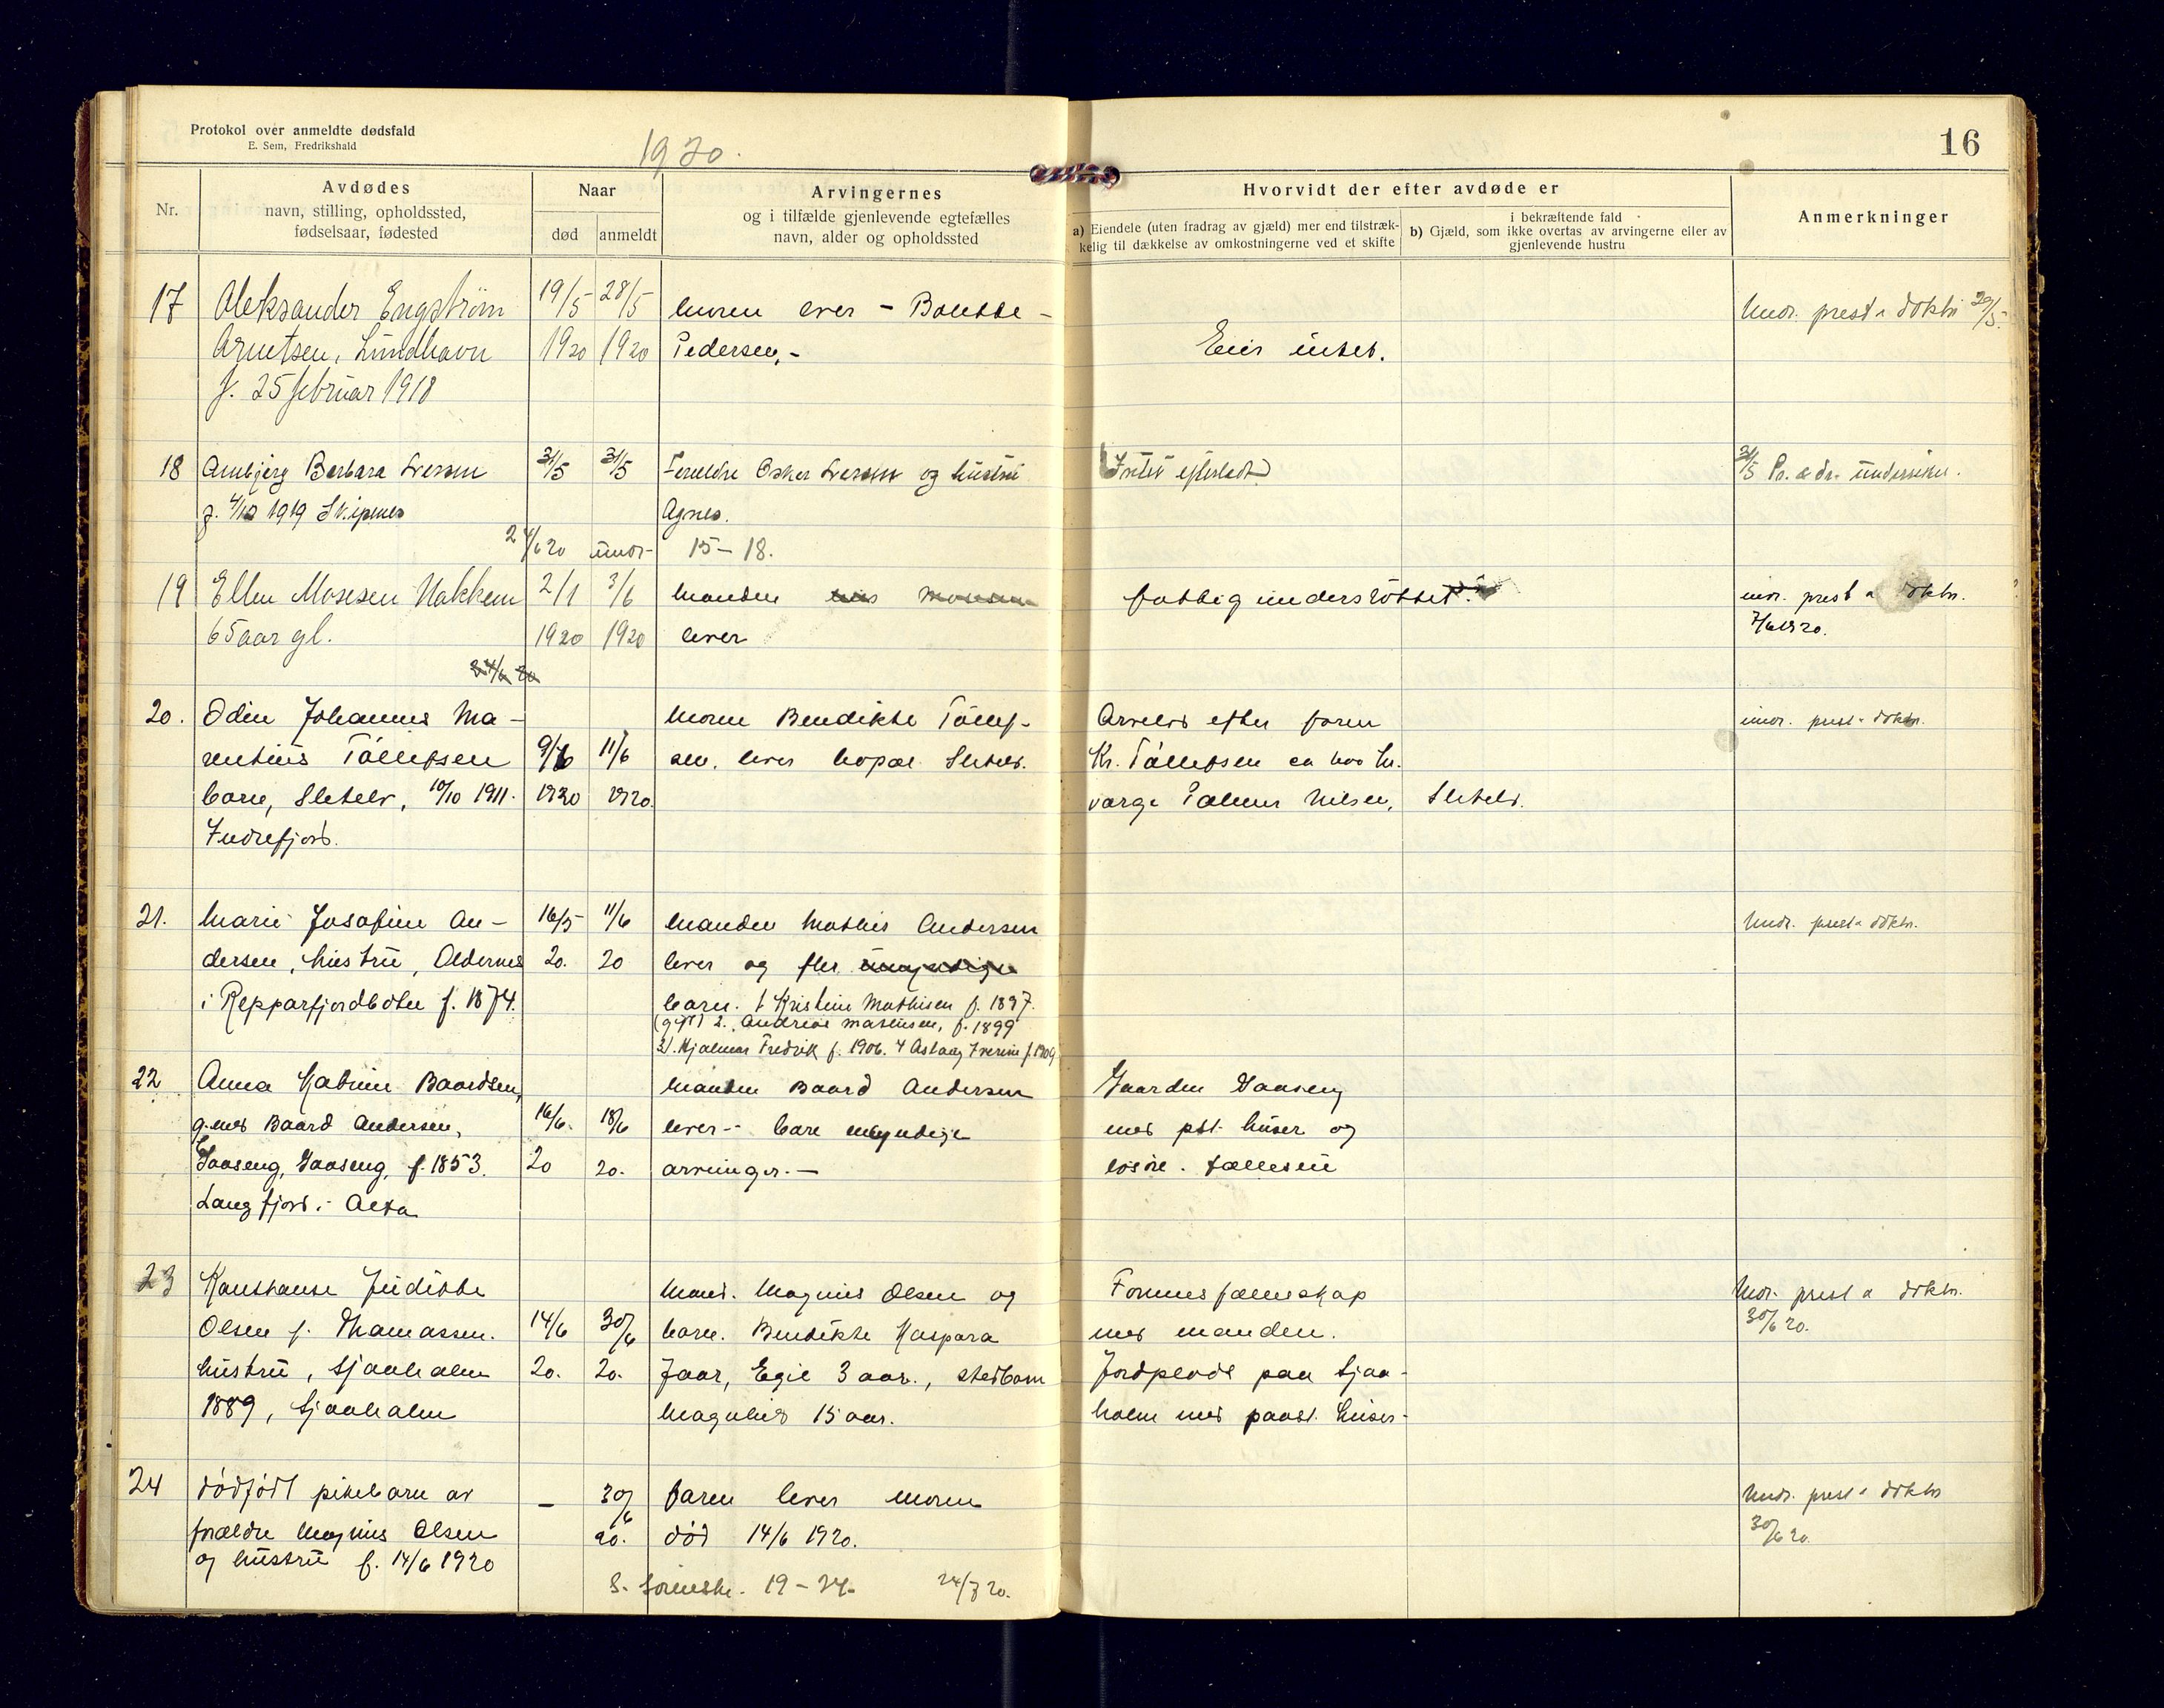 Protokol over anmeldte dødsfald
E. Sem, Fredrikshald
1920.
16
Nr.
Avdødes
navn, stilling, opholdssted,
fødselsaar, fødested
Naar
død
anmeldt
Arvingernes
og i tilfælde gjenlevende egtefælles
navn, alder og opholdssted
Hvorvidt der efter avdøde er
a) Eiendele (uten fradrag av gjæld) mer end tilstræk-
kelig til dækkelse av omkostningerne ved et skifte
i bekræftende fald
b) Gjæld, som ikke overtas av arvingerne eller av
gjenlevende hustru
Anmerkninger
17 Aleksander Engstrøm 19/5 28/5 Moren lever - Bolette - Undr. prest & doktor 29/5.
Arntsen, Lundhavn 1920 1920 Pedersen. - Eier intet.
f. 25 februar 1918
18 Arnbjørg Barbara Iversen 31/5 31/5 Foreldre Oskar Iversen og hustru Intet efterladt 31/5 Pr. & dr. underrettet.
f. 4/12 1919 Skipnes Agnes.
24/6 20 undr. 15-18.
19 Ellen Mosesen Kokkem 2/1 3/6 Manden fattigunderstøttet. undr. prest & doktor.
65 aar gl. 1920 1920 lever 7/6 1920.
24/6 20
20. Odin Johannes Ma- Moren Bendikte Tollef- Arvelod efter faren undr. prest & doktor.
rentius Tollefsen 9/6 11/6 sen, lever bopæl Sletelv. Kr. Tollefsen ca 400 kr.
barn, Sletelv, 10/10 1911. 1920 1920. værge Palmer Nilsen, Sletelv.
Indrefjord.
21. Marie Josefine An- 16/5 11/6 Manden Mathis Andersen Undr. prest & doktor.
dersen, hustru, Aldernes 20. 20 lever og fler umyndige
i Repparfjordbotn f. 1874. barn. 1 Kristine Mathisen f. 1897.
(gift) 2. Andreas Mathisen, f. 1899
3). Hjalmar Fredrik f. 1906. 4 Aslaug Iverine f. 1909
22 Anna Katrine Baardsen, Manden Baard Andersen Gaarden Saaseng
g. med Baard Andersen, 16/6. 18/6 lever - bare myndige med pst. huser og
Saaseng, Saaseng, f. 1853. 20 20. arvinger. - løsøre. fælleseie
Langfjord i Alta
23 Konstanse Juditte Mand. Magnus Olsen og Formuesfælleskap Undr. prest & doktor.
Olsen f. Thomassen. 14/6 30/6 barn. Bendikte Kaspara med manden. 30/6 20.
hustru, Sjaaholm 20. 20. 7 aar, Egil 3 aar., stedbarn Jordplads paa Sjaa-
1889, Sjaaholm Magnhild 15 aar. holm med paast. huser.
24 dødfødt pikebarn av - 30/6 faren lever moren Undr. prest & doktor
forældre Magnus Olsen 20. død 14/6 1920. 30/6 20.
og hustru f. 14/6 1920
S. 19-24. 24/7 20.